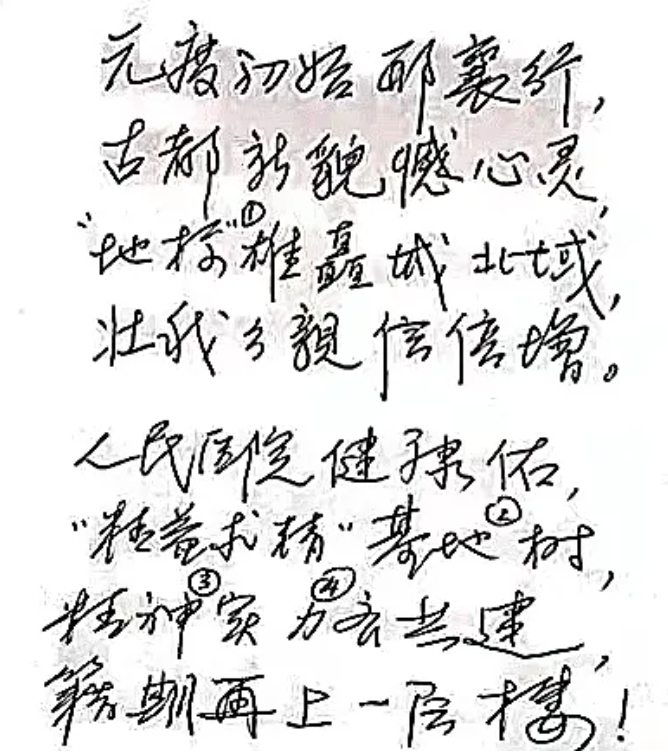 元度初始邢襄行,
古都新貌憾心灵,
"地标"①雄矗城北域,
壮我乡親信倍增。
人民医院健康佑,
"精益求精"基地②树,
精神③实力④共建,
期再上一层楼!